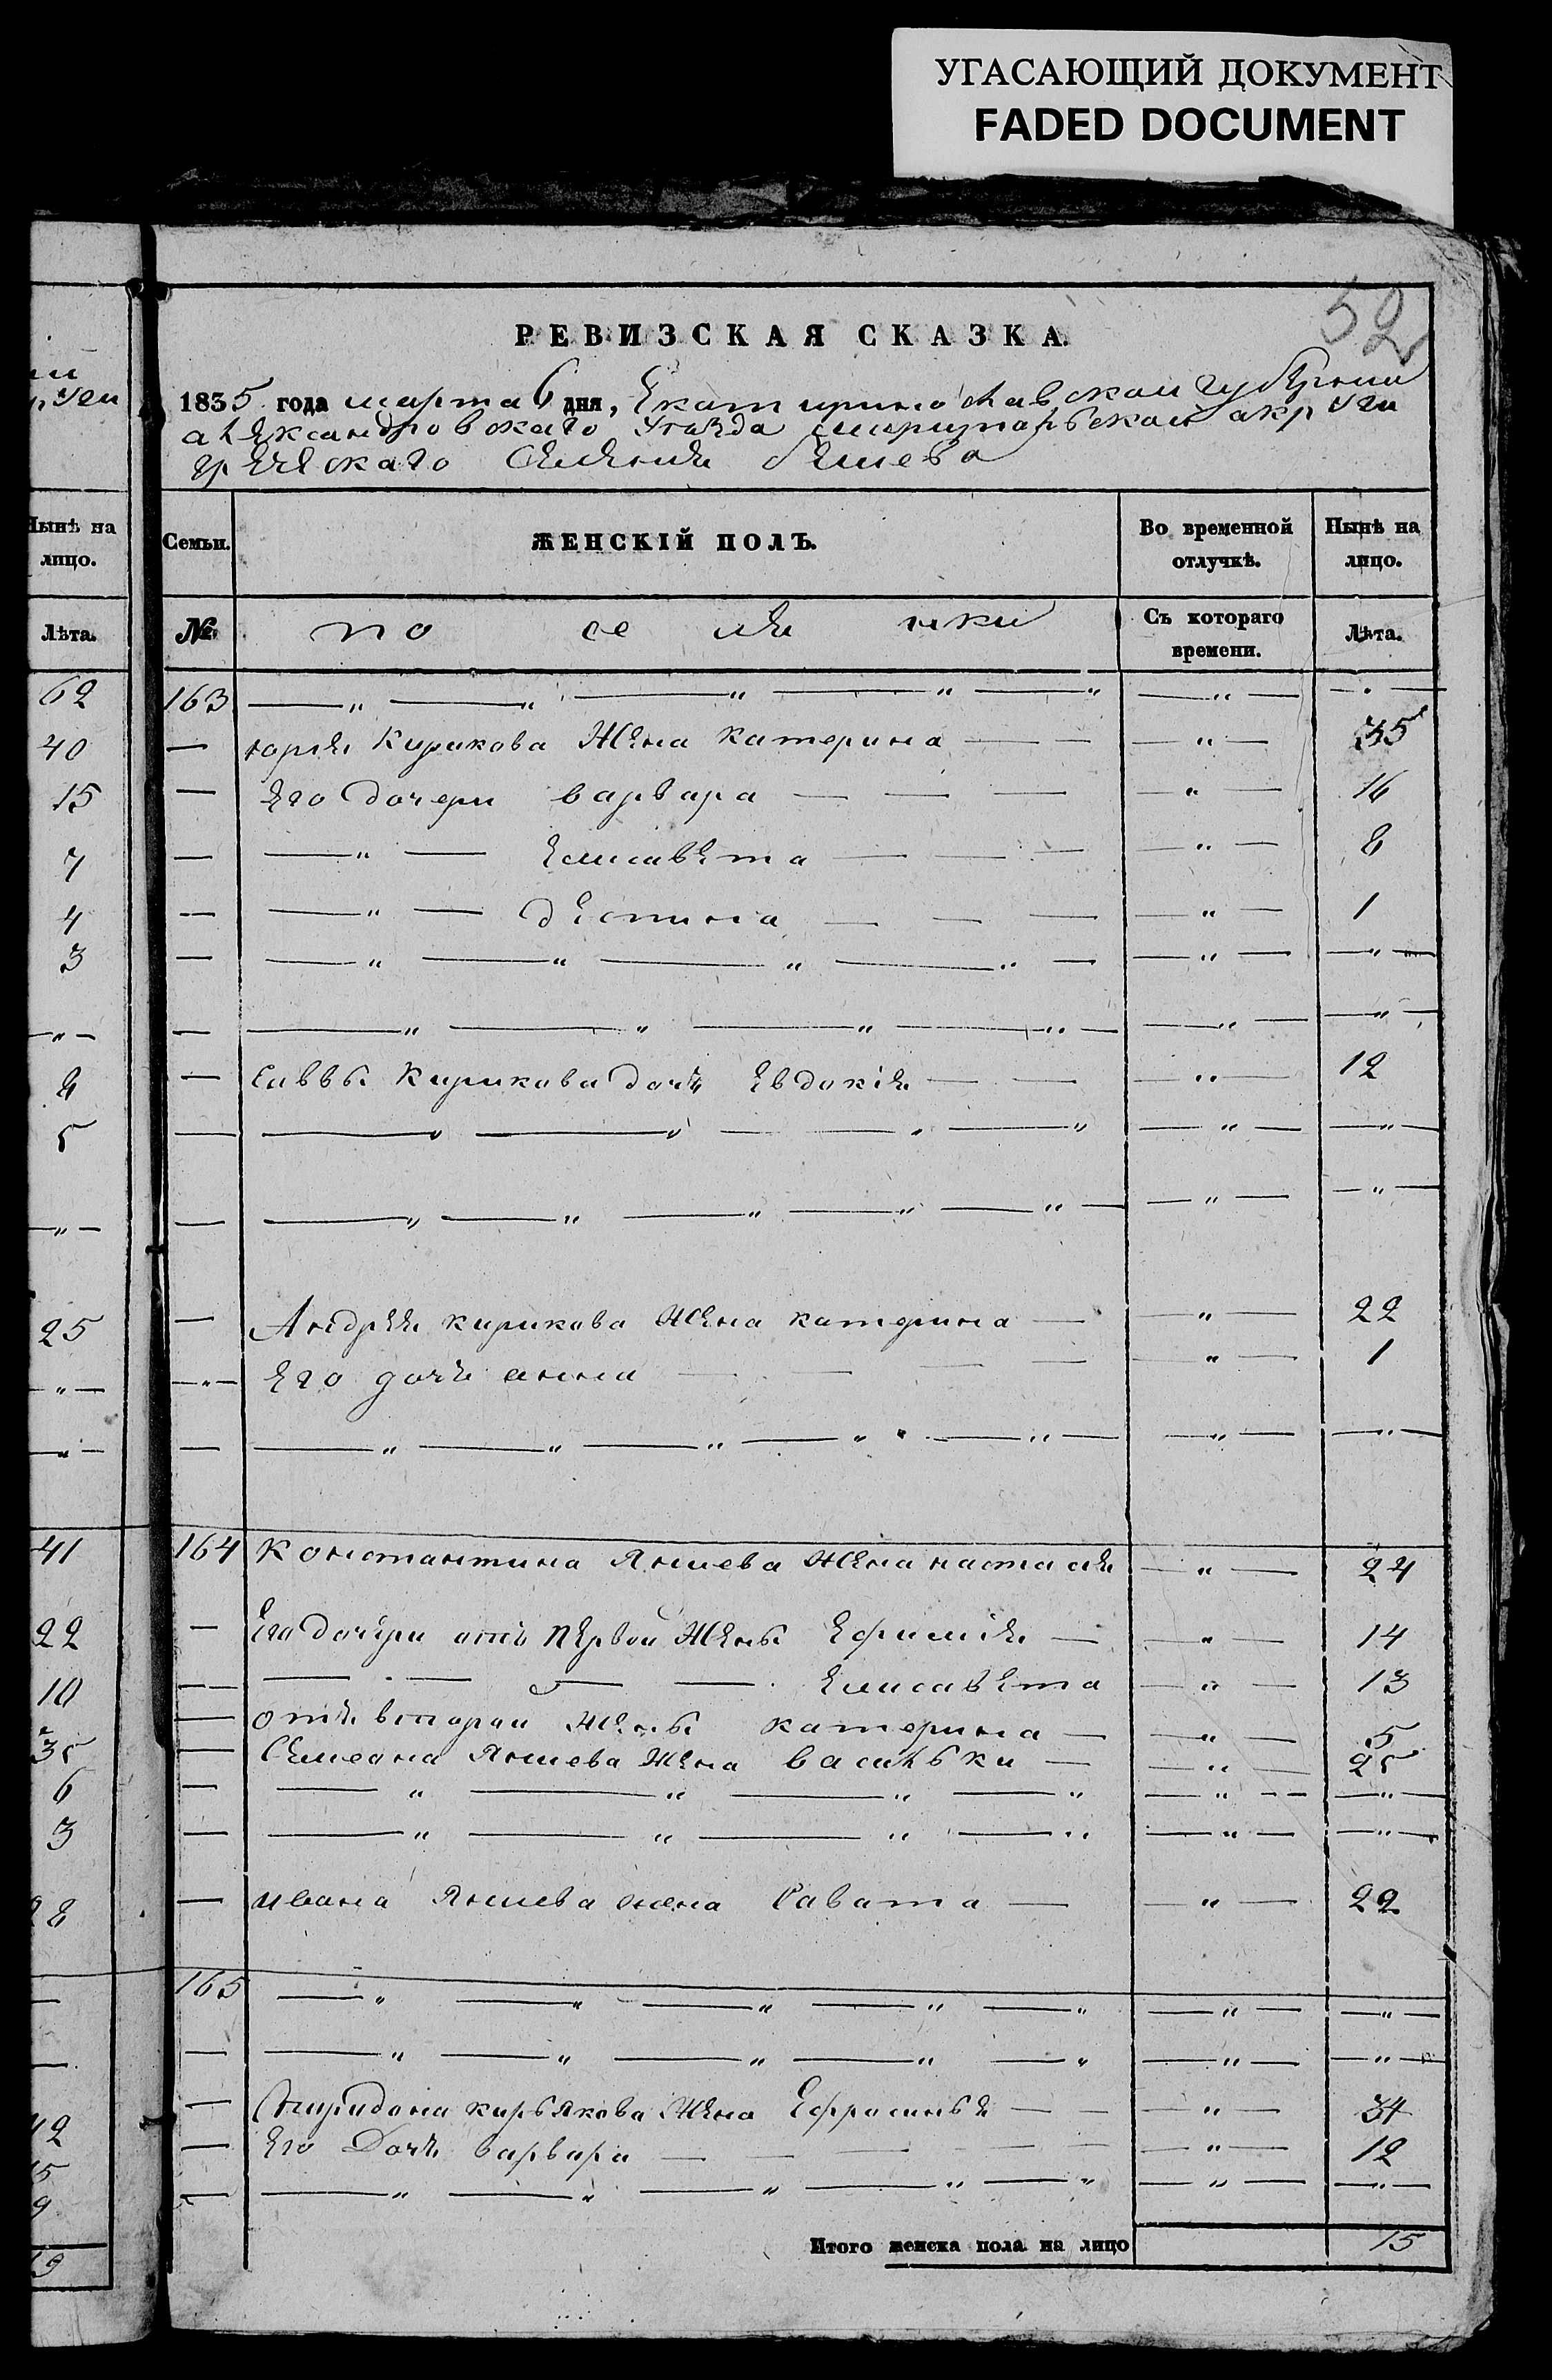 УГАСАЮЩИЙ ДОКУМЕНТ
FADED DOCUMENT
52
РЕВИЗСКАЯ СКАЗКА.
1835 года марта 6 дня, Екатиринославской губернии
александровскаго уъзда мириупарьской акруги
греческаго селения бешева
Нынѣ на лицо.
Лѣта.
62
40
15
7
4
3
— „ —
8
5
— „ —
25
— „ —
— „ —
41
22
10
35
6
3
28
Семьи. ЖЕНСКІЙ ПОЛЪ. Во временной отлучкѣ. Нынѣ на лицо.
№ по се ля нки Съ котораго времени. Лѣта.
163 — „ — „ — „ — „ — „ — „ — — „ —
— юрия Кирикова Жена Катерина — — — „ — 35
— Его дочери варвара — — — — „ — 16
— — „ — Елисавета — — — — „ — 8
— — „ — деспина — — — — „ — 1
— — „ — „ — „ — „ — — „ — — „ —
— — „ — „ — „ — „ — — „ — — „ —
— саввы Кирикова дочь Евдокия — — — „ — 12
— — „ — „ — — „ — „ — „ — — „ —
— — „ — „ — „ — „ — „ — — „ — — „ —
— Андрея кирикова Жена катерина — — „ — 22
— „ — Его дочь анна — — — — — „ — 1
— — „ — „ — „ — „ — „ — — „ — — „ —
164 Константина Яниева Жена настасия — „ — 24
— Его дочери отъ первой Жены Ефимия — — „ — 14
— — — — — Елисавета — „ — 13
— отъ второй Жены катерина — — „ — 5
— Семеона Яниева Жена васильки — — „ — 25
— — „ — „ — „ — „ — „ — — — „ —
— — „ — „ — „ — „ — „ — — „ —
— ивана Яниева жена Савата — — „ — 22
165 — „ — „ — „ — „ — „ — „ — — „ —
— — „ — „ — „ — „ — „ — „ — — „ —
— Спиридона кирьякова Жена Ефросинья — — — „ — 34
— Его Дочь варвара — — — — — — „ — 12
— — „ — „ — „ — „ — „ — „ — — „ —
Итого женска пола на лицо 15